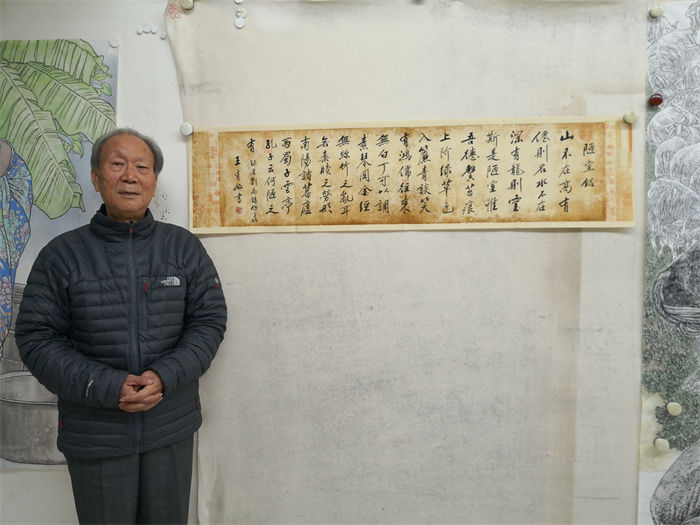 陋室銘
山不在高有
僊則名水不在
深有龍則靈
斯是陋室惟
吾德馨苔痕
上階綠草色
入簾青談笑
有鴻儒往來
無白丁可以調
素琴閱金經
無絲竹之亂耳
無案牘之勞形
南陽諸葛廬
西蜀子雲亭
孔子云何陋之
有
王 書
THE NORTH FACE